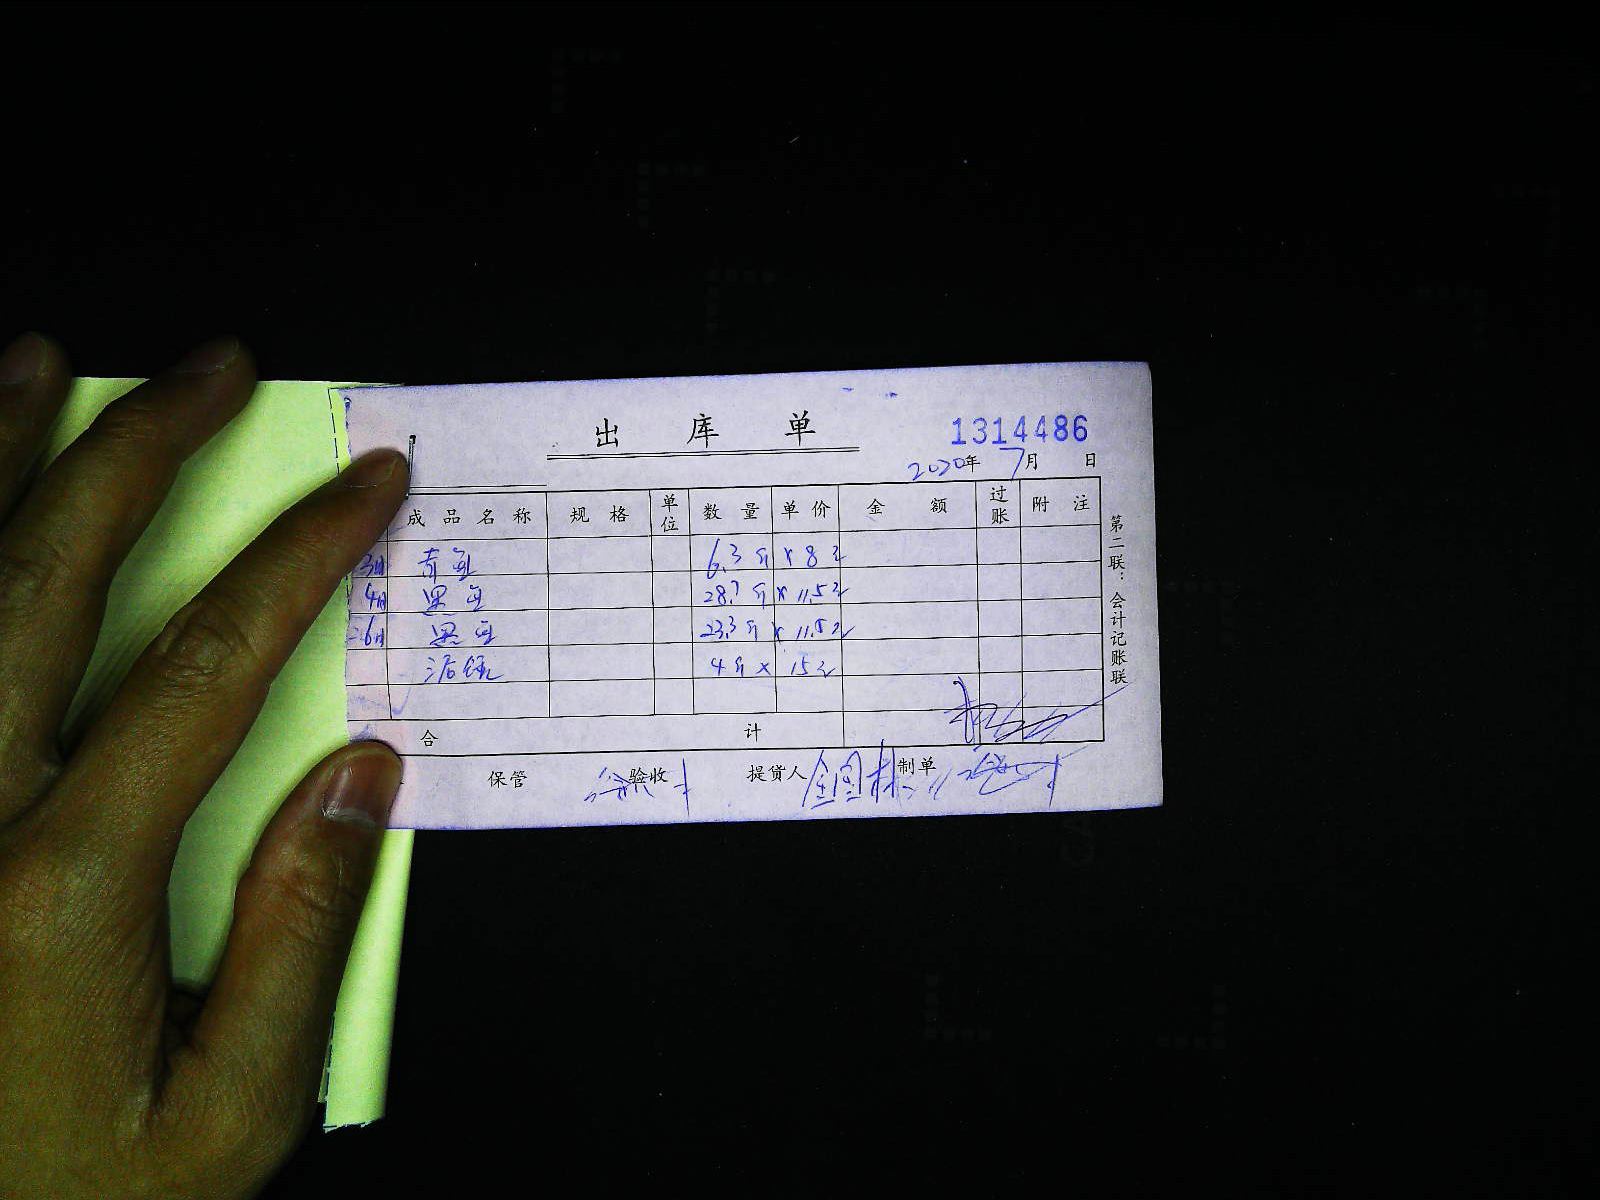 出库单
1314486
2020年 7月 日
成品名称 规格 单位 数量 单价 金额 过账 附注
3日 青鱼 6.3斤 × 8元
4日 黑鱼 28.7斤 × 11.5元
6日 黑鱼 23.3斤 × 11.5元
4斤 × 15元
合计
保管 验收 提货人 制单
第二联：会计记账联